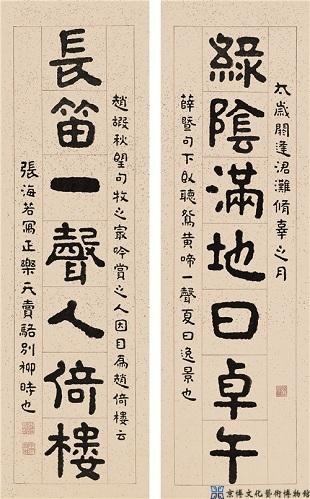 大歲閼逢涒灘脩辜之月
綠陰滿地日卓午
薛暨句下臥聽鶯黄啼一聲夏日逸景也
趙嘏秋望句牧之家吟賞之人因目為趙倚樓云
長笛一聲人倚樓
張海若寫正樂天賣駱別柳時也
京博文化藝術博物館